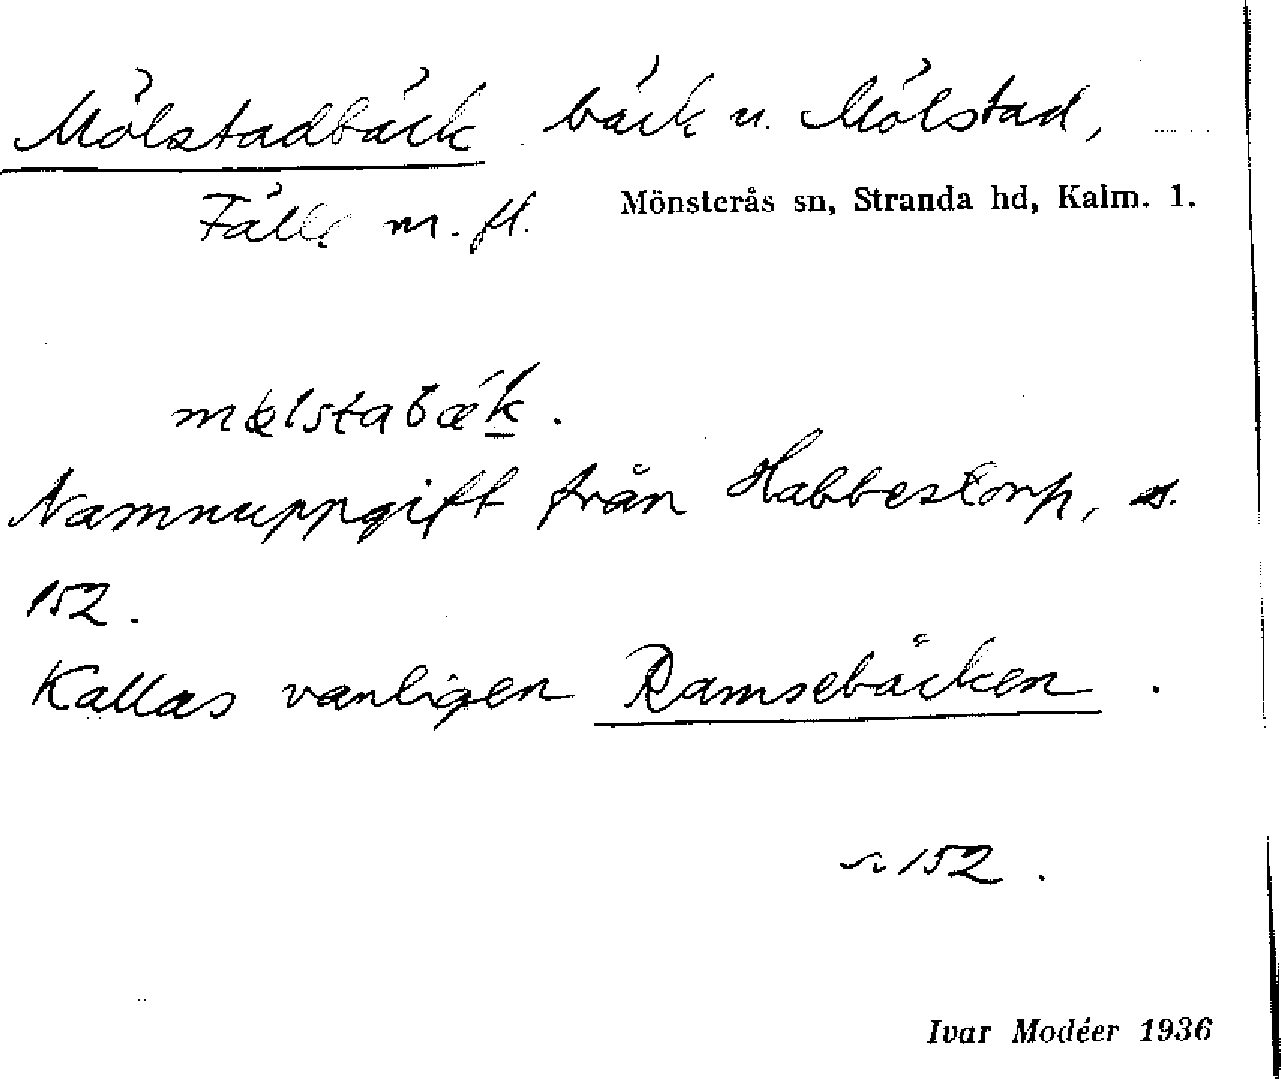 Mölstadbäck bäck u. Mölstad,
Fälle m. fl. Mönsterås sn, Stranda hd, Kalm. l.
mœlstabæk.
Namnuppgift från Habbestorp, s.
152.
Kallas vanligen Ramsebäcken.
s. 152.
Ivar Modéer 1936